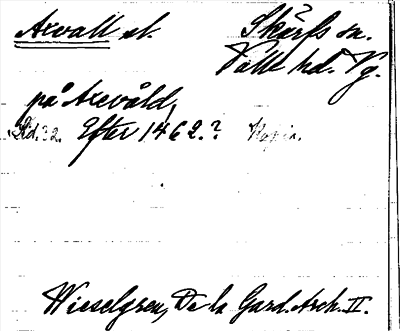 Axvall st. Skärfs sn.
Valle hd. Vg.
på Axevåld,
Sid. 32. Efter 1462.? Kopia.
Wieselgren, De la Gard. Arch. II.